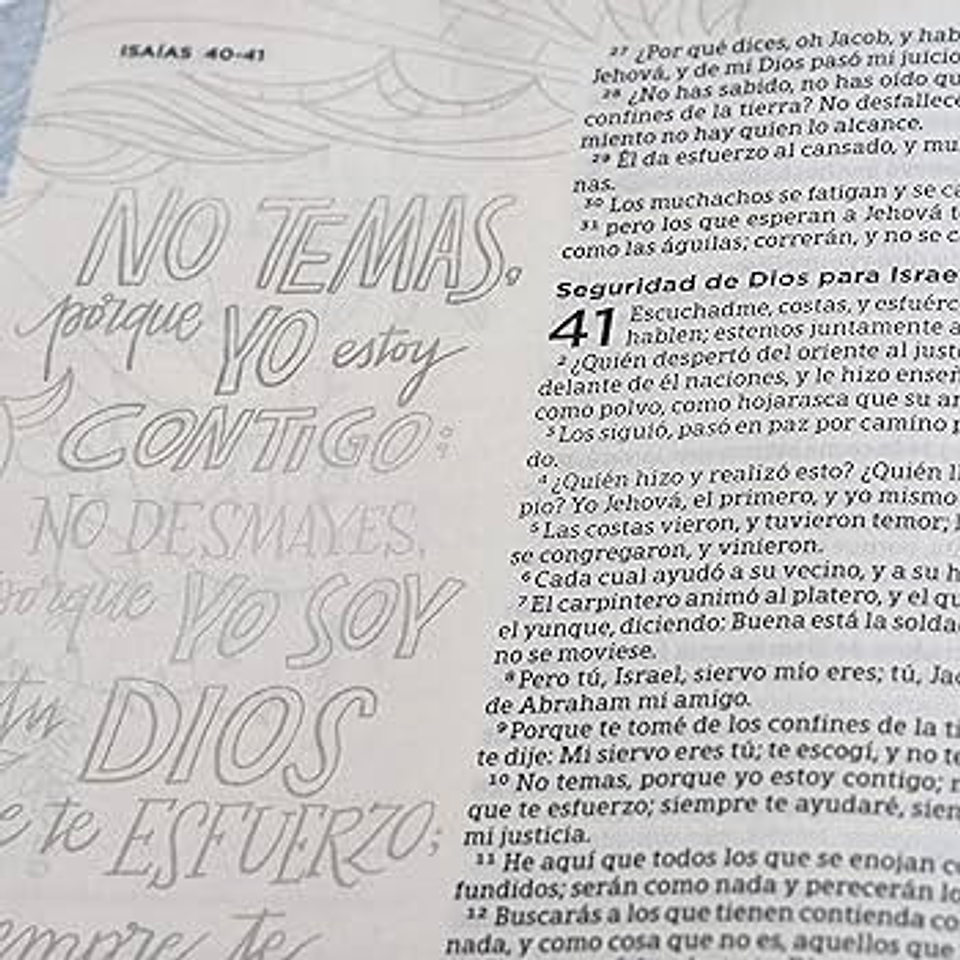 ISAÍAS 40-41
NO TEMAS,
porque YO estoy
CONTIGO;
NO DESMAYES,
porque YO SOY
tu DIOS
te ESFUERZO;
te
27 ¿Por qué dices, oh Jacob, y
Jehová, y de mi Dios pasó mi juicio
28 ¿No has sabido, no has oído
confines de la tierra? No
miento no hay quien lo alcance.
29 Él da esfuerzo al cansado, y
nas.
30 Los muchachos se fatigan y se
31 pero los que esperan a Jehová
como las águilas; correrán, y no se
Seguridad de Dios para
41 Escuchadme, costas, y
hablen; estemos juntamente a
2 ¿Quién despertó del oriente al
delante de él naciones, y le hizo
como polvo, como hojarasca que su
3 Los siguió, pasó en paz por camino
do.
4 ¿Quién hizo y realizó esto? ¿Quién
pio? Yo Jehová, el primero, y yo mismo
5 Las costas vieron, y tuvieron temor;
se congregaron, y vinieron.
6 Cada cual ayudó a su vecino, y a su
7 El carpintero animó al platero, y el
el yunque, diciendo: Buena está la
no se moviese.
8 Pero tú, Israel, siervo mío eres; tú,
de Abraham mi amigo.
9 Porque te tomé de los confines de la
te dije: Mi siervo eres tú; te escogí, y no
10 No temas, porque yo estoy contigo;
que te esfuerzo; siempre te ayudaré,
mi justicia.
11 He aquí que todos los que se enojan
fundidos; serán como nada y perecerán
12 Buscarás a los que tienen contienda
nada, y como cosa que no es, aquellos que